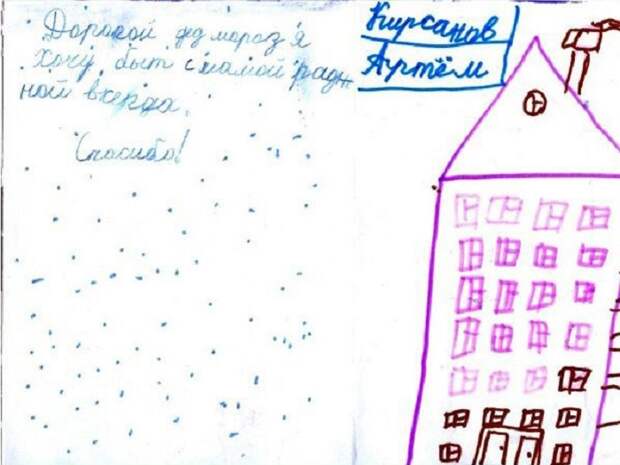 Дорогой дед мороз я
Хочу быт с мамой радн
ной всегда.
Спасибо!
Кирсанов
Артём